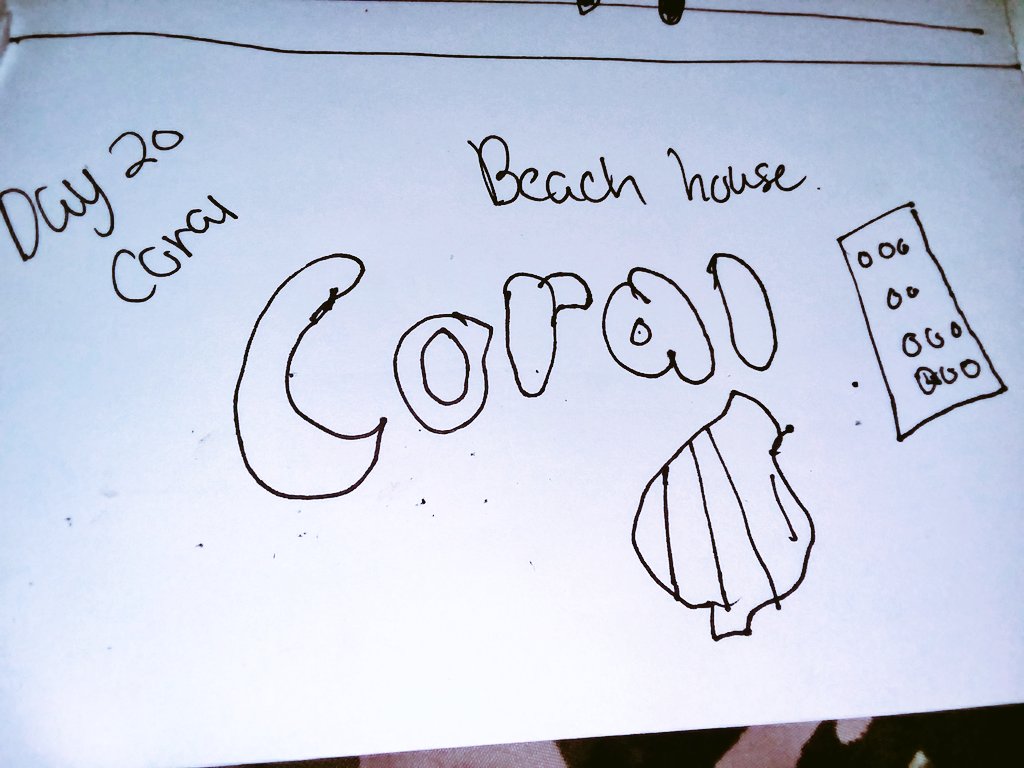 Day 20
Coral
Beach house.
Coral